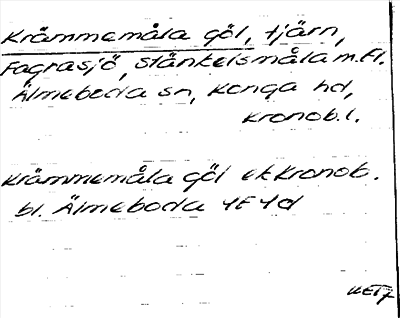 Krämmemåla göl, tjärn,
Fagrasjö, stänkelsmåla m.fl.
Älmeboda sn, Konga hd,
Kronob.l.
Krämmemåla göl ek Kronob.
bl. Älmeboda 4F4d